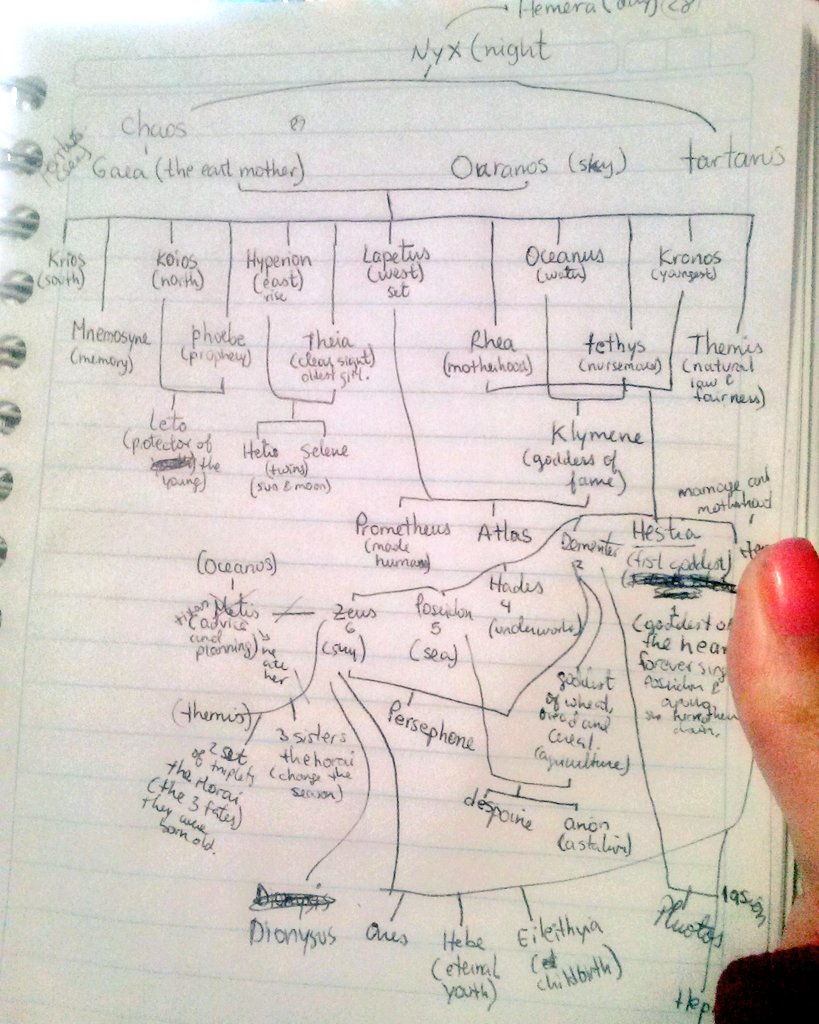 Hemera (day)
Nyx (night
Chaos
Gaea (the eart mother)
Ouranos (sky)
tartarus
Krios
(south)
Koios
(north)
Hyperion
(east)
rise
Lapetus
(west)
set
Oceanus
(water)
Kronos
(youngest)
Mnemosyne
(memory)
phoebe
(prophecy)
Theia
(clear sight)
oldest girl.
Rhea
(motherhood)
tethys
Themis
(natural
law &
fairness)
Leto
(protector of
the
young)
Helio Selene
(twins)
(sun & moon)
Klymene
(goddess of
fame)
mariage and
motherhood
Prometheus
(made
human)
Atlas
Dementer
2
Hestia
(first goddess)
(Oceanos)
titan Metis
(advice
and
planning)
he
ate
her
Zeus
6
(sky)
Poseidon
5
(sea)
Hades
4
(underworld)
(goddest of
the hear
forever sing
Poseidon &
goddest
of wheat,
bread and
cereal.
(agriculture)
Persephone
(themis)
2 set
of triplets
the Horai
(the 3 fates)
they were
born old.
3 sisters
the horai
(change the
season)
despoine
arion
Dionysus
ares
Hebe
(eternal
youth)
Eileithyia
childbirth)
Plutos
Iasion
Hep